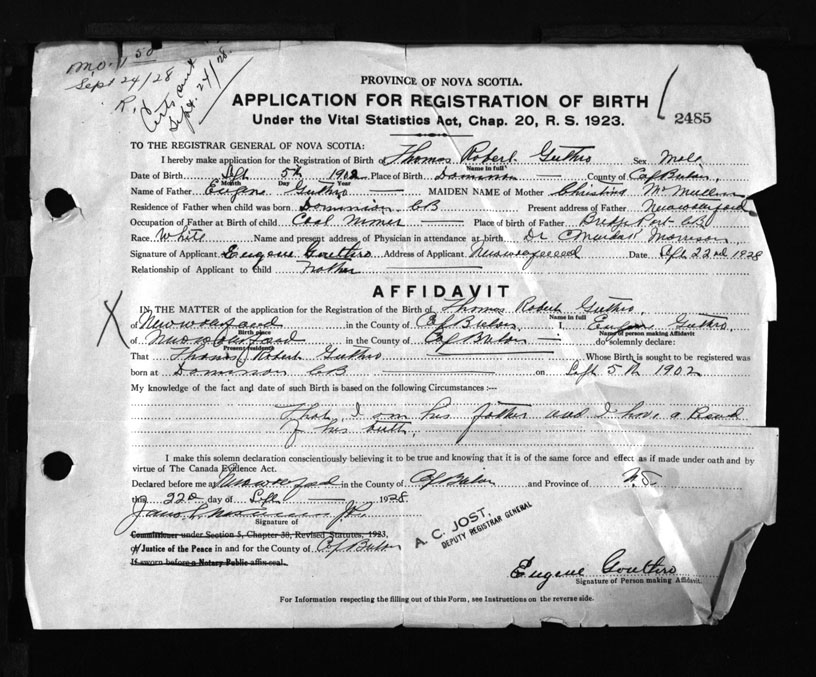 Mo. 1.50
Sept 24/28
R.
Certs out
Sept. 24/28.
PROVINCE OF NOVA SCOTIA.
APPLICATION FOR REGISTRATION OF BIRTH
Under the Vital Statistics Act, Chap. 20, R. S. 1923.
2485
TO THE REGISTRAR GENERAL OF NOVA SCOTIA:
I hereby make application for the Registration of Birth of Thomas Robert Guthro Sex Male
Name in full
Date of Birth Sept 5th 1902 Place of Birth Dominion County of Cap Breton
Month Day Year
Name of Father Eugene Guthro MAIDEN NAME of Mother Christina McMullin
Residence of Father when child was born Dominion CB Present address of Father
Occupation of Father at Birth of child Coal Place of birth of Father Bridge Port CB
Race White Name and present address of Physician in attendance at birth Dr Morrison
Signature of Applicant Eugene Gouthro Address of Applicant Date Sept 22nd 1928
Relationship of Applicant to Child
AFFIDAVIT
X
IN THE MATTER of the application for the Registration of the Birth of Thomas Robert Guthro
Name in full
of in the County of Cap Breton I, Eugene Guthro
Birth place Name of person making Affidavit
of in the County of Cap Breton do solemnly declare:
Present residence
That Thomas Robert Guthro Whose Birth is sought to be registered was
born at Dominion CB on Sept 5th 1902
My knowledge of the fact and date of such Birth is based on the following Circumstances :—
That I am his father and I have a
of his birth.
I make this solemn declaration conscientiously believing it to be true and knowing that it is of the same force and effect as if made under oath and by
virtue of The Canada Evidence Act.
Declared before me at in the County of Cap Breton and Province of N.S.
this 22 day of Sept 1928
Signature of
Commissioner under Section 5, Chapter 38, Revised Statutes, 1923,
of Justice of the Peace in and for the County of Cap Breton
If sworn before a Notary Public affix seal.
A. C. JOST.
DEPUTY REGISTRAR GENERAL
Eugene Gouthro
Signature of Person making Affidavit.
For Information respecting the filling out of this Form, see Instructions on the reverse side.